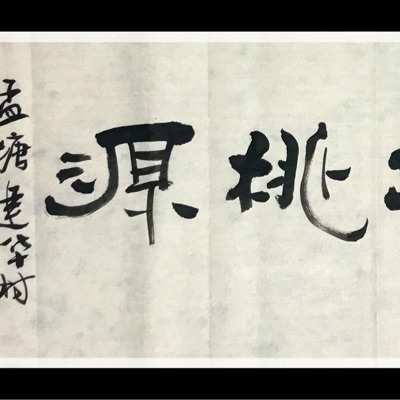 桃源
孟塘建华村